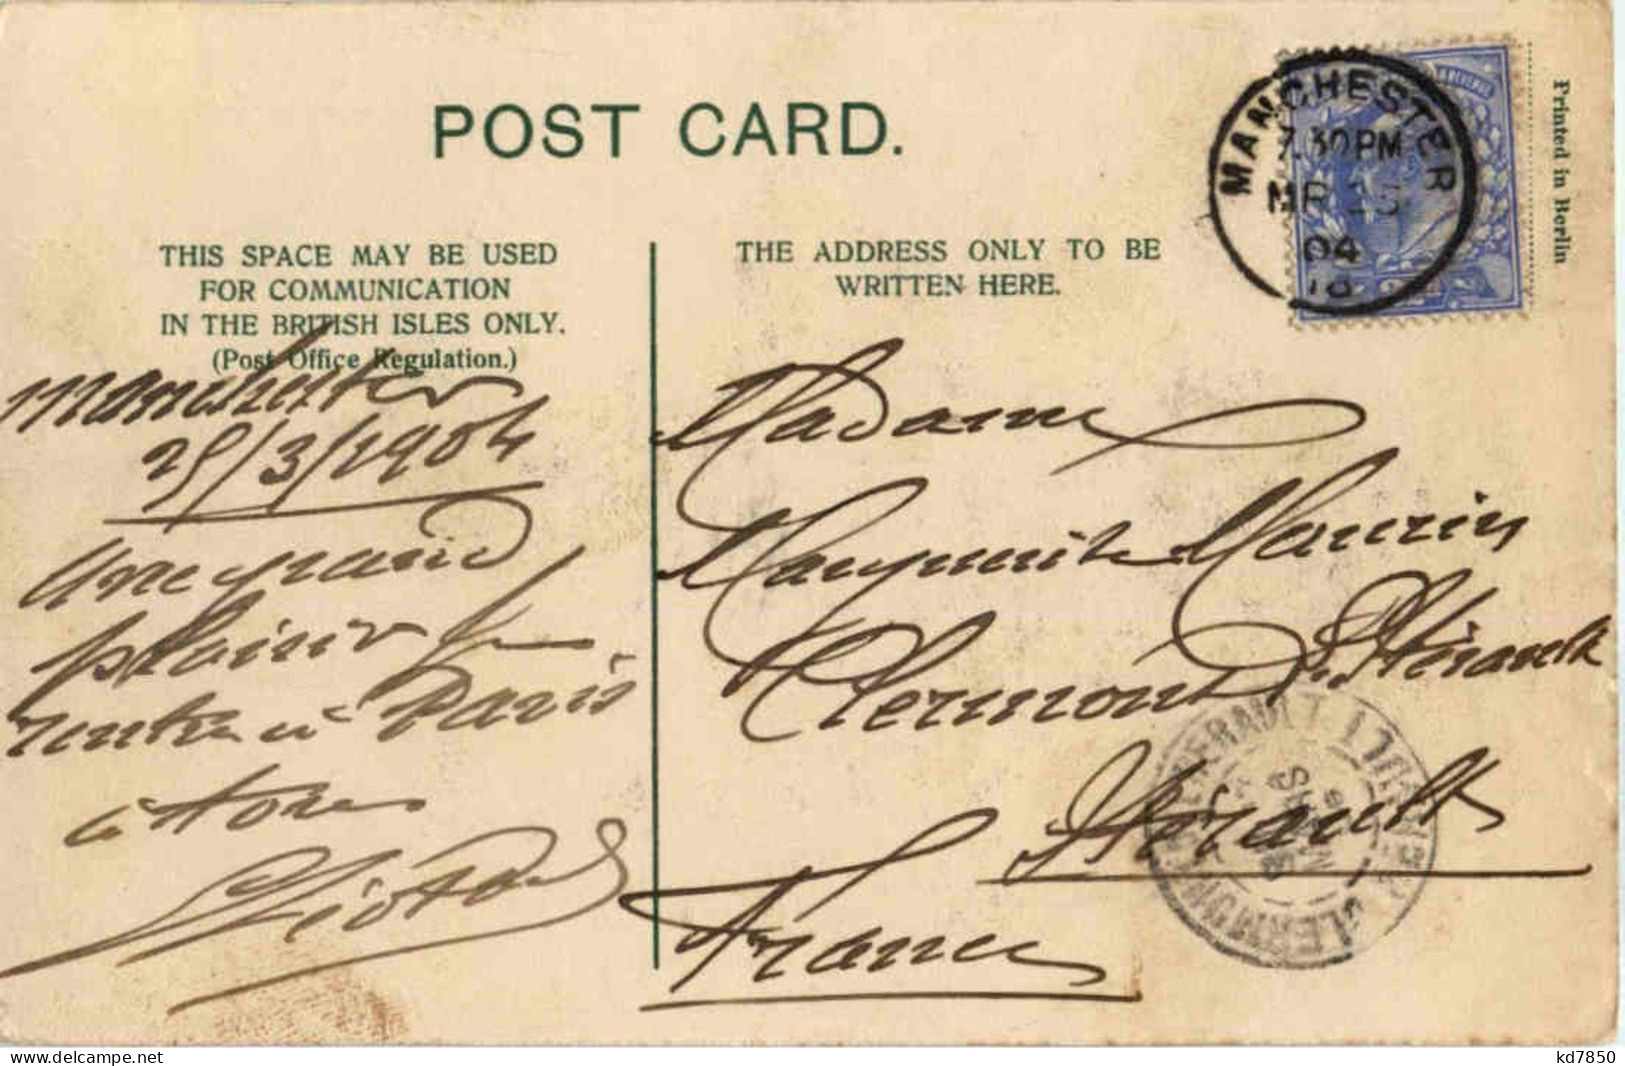 POST CARD.
THIS SPACE MAY BE USED
FOR COMMUNICATION
IN THE BRITISH ISLES ONLY.
(Post Office Regulation.)
THE ADDRESS ONLY TO BE
WRITTEN HERE.
Printed in Berlin
MANCHESTER
7.30PM
MR 25
04
Manchester
25/3/1904
Une grand
plaisir
rentre à Paris
à
Madame
Marguerite Maurin
Clermont L'Hérault
Hérault
France
CLERMONT L'HERAULT
HERAULT
delcampe.net
kd7850